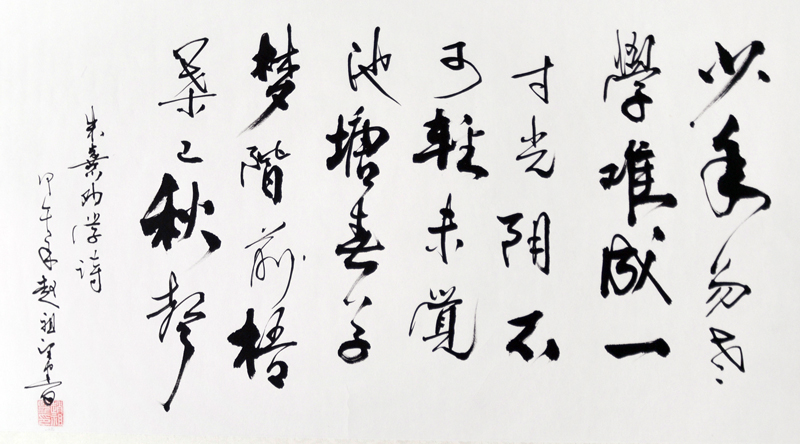 少年易老
學難成一
寸光阴不
可輕未覺
池塘春草
梦階前梧
葉已秋聲
朱熹劝学诗
甲午年赵祖望書